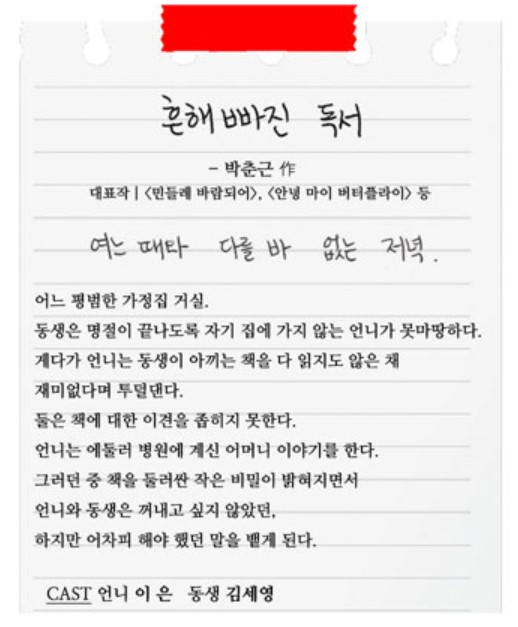 흔해빠진 독서
- 박춘근 作
대표작 | 〈민들레 바람되어〉, 〈안녕 마이 버터플라이〉 등
여느 때타 다를 바 없는 저녁.
어느 평범한 가정집 거실.
동생은 명절이 끝나도록 자기 집에 가지 않는 언니가 못마땅하다.
게다가 언니는 동생이 아끼는 책을 다 읽지도 않은 채
재미없다며 투덜댄다.
둘은 책에 대한 이견을 좁히지 못한다.
언니는 에둘러 병원에 계신 어머니 이야기를 한다.
그러던 중 책을 둘러싼 작은 비밀이 밝혀지면서
언니와 동생은 꺼내고 싶지 않았던,
하지만 어차피 해야 했던 말을 뱉게 된다.
CAST 언니 이 은 동생 김세영